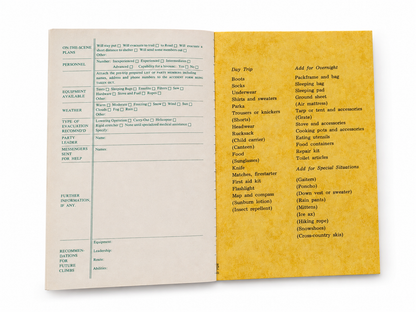 ON-THE-SCENE
PLANS
Other:
PERSONNEL
Number: Inexperienced Experienced Intermediate
Advanced Capability for a rescue: Yes No
EQUIPMENT
AVAILABLE
Other:
WEATHER
Other:
TYPE OF
EVACUATION
RECOMMENDED
Lowering Operation Carry-Out Helicopter
Specify:
PARTY
LEADER
Name:
MESSENGERS
SENT
FOR HELP
Names:
FURTHER
INFORMATION,
IF ANY
RECOMMEN-
DATIONS
FOR
FUTURE
CLIMBS
Equipment:
Leadership:
Route:
Abilities:
Day Trip
Boots
Socks
Underwear
Shirts and sweaters
Parka
Trousers or knickers
(Shorts)
Headwear
Rucksack
(Child carrier)
(Canteen)
Food
(Sunglasses)
Knife
Matches, firestarter
First aid kit
Flashlight
Map and compass
(Sunburn lotion)
(Insect repellent)
Add for Overnight
Packframe and bag
Sleeping bag
Sleeping pad
Ground sheet
(Air mattress)
Tarp or tent and accessories
(Grate)
Stove and accessories
Cooking pots and accessories
Eating utensils
Food containers
Repair kit
Toilet articles
Add for Special Situations
(Gaiters)
(Poncho)
(Down vest or sweater)
(Rain pants)
(Mittens)
(Ice ax)
(Hiking rope)
(Snowshoes)
(Cross-country skis)